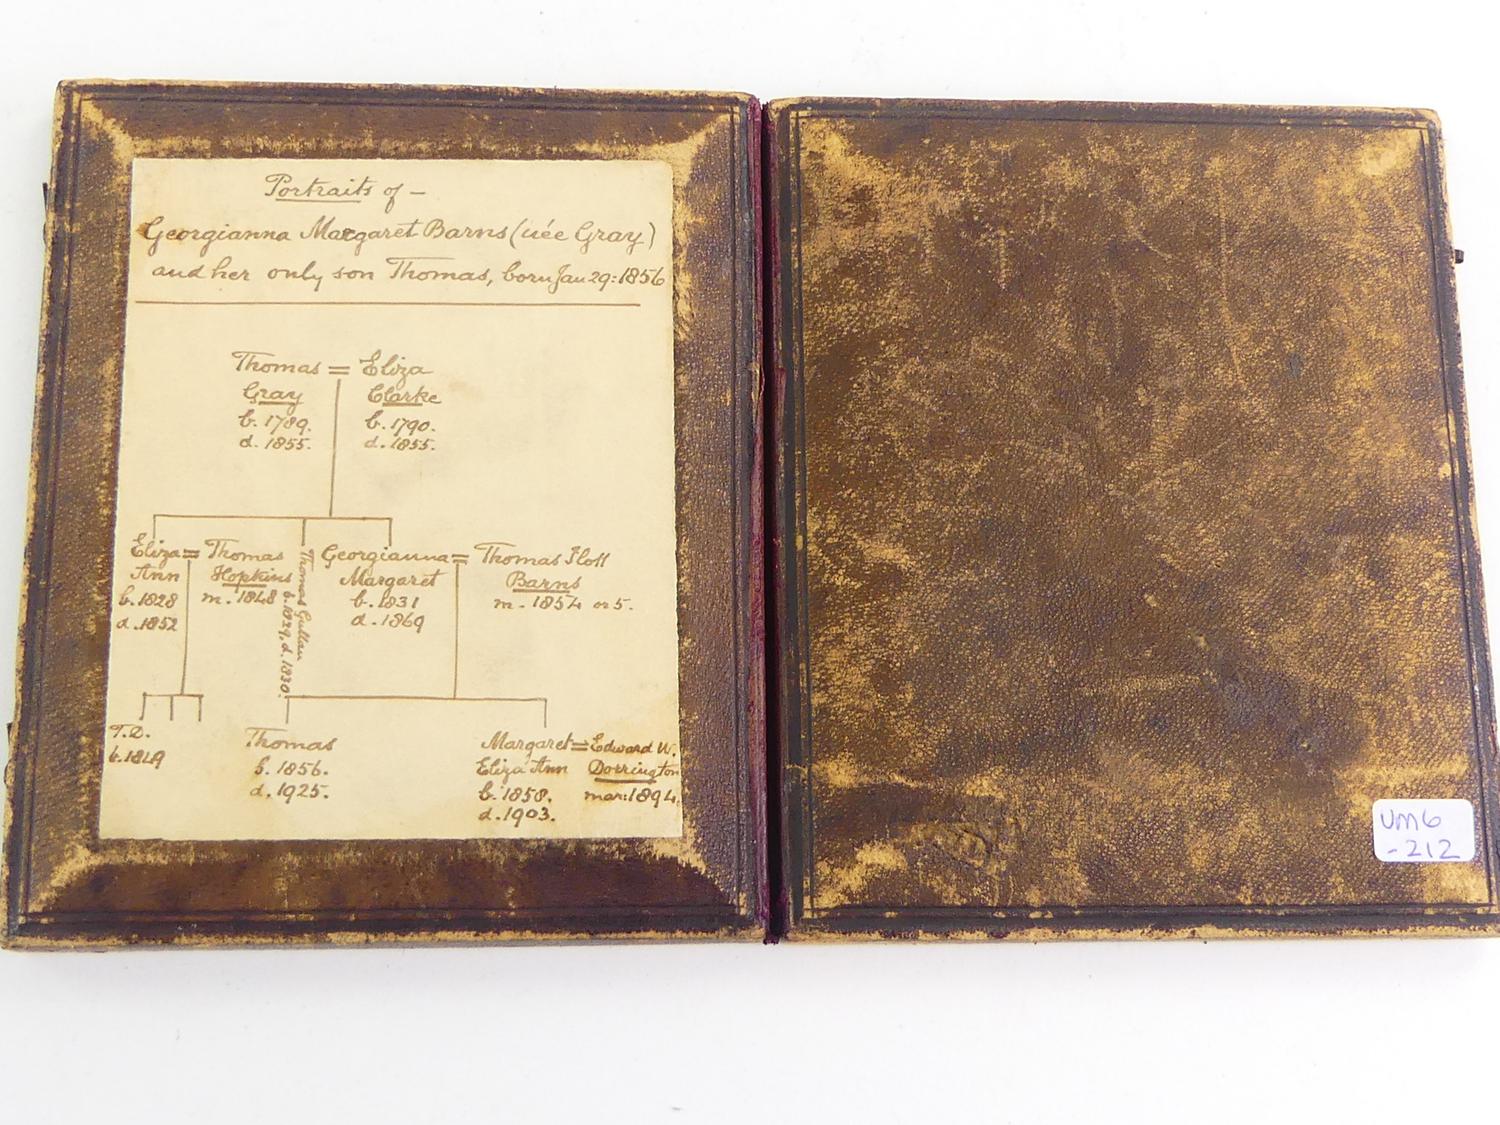 Portraits of –
Georgianna Margaret Barns (née Gray)
and her only son Thomas, born Jan 29: 1856
Thomas = Eliza
Gray Clarke
b. 1789. b. 1790.
d. 1855. d. 1855.
Eliza = Thomas
Ann Hopkins
b. 1828 m. 1848
d. 1852
Thomas
b. 1829, d. 1830.
Georgianna = Thomas
Margaret Barns
b. 1831 m. 1854 or 5.
d. 1869
T.D.
b. 1849
Thomas
b. 1856.
d. 1925.
Margaret = Edward W.
Eliza Ann Dorrington
b. 1858. mar: 1894.
d. 1903.
UM6
-212